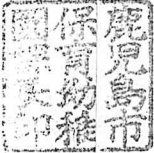 鹿児島市
保育幼稚
園課長印